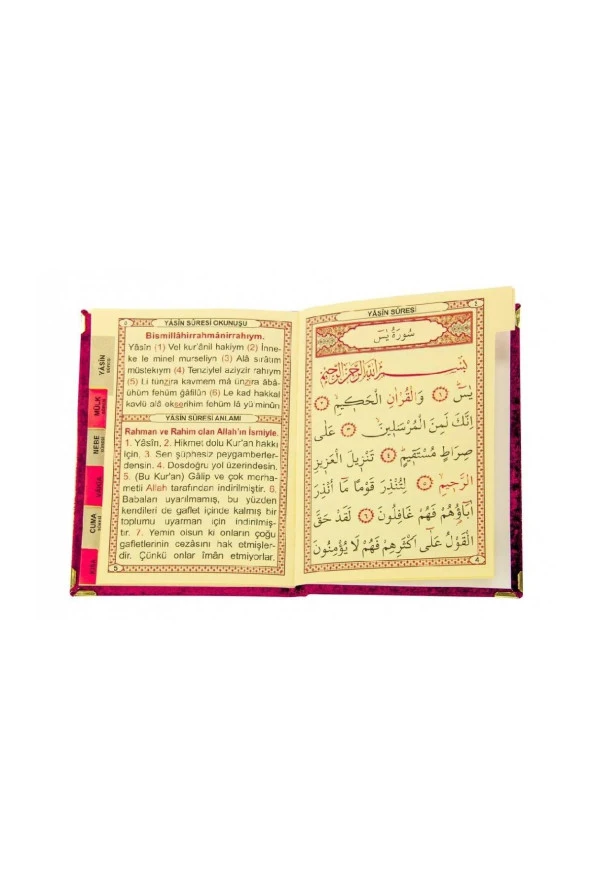 YÂSÎN SÛRESİ OKUNUŞU
Bismillâhirrahmânirrahıym.
Yâsîn (1) Vel kur'ânil hakiym (2) İnne-
ke le minel murseliyn (3) Alâ sıratım
müstekıym (4) Tenziylel aziyzir rahıym
(5) Li tunzira kavmem mâ ünzira âbâ-
ühüm fehüm ğâfilûn (6) Le kad hakkal
kavlü alâ okserihim fehüm lâ yü'minûn
YÂSÎN SÛRESİ ANLAMI
Rahman ve Rahim olan Allah'ın İsmiyle.
1. Yâsîn, 2. Hikmet dolu Kur'an hakkı
için, 3. Sen şüphesiz peygamberler-
densin. 4. Dosdoğru yol üzerindesin.
5. (Bu Kur'an) Gâlip ve çok merha-
metli Allah tarafından indirilmiştir. 6.
Babaları uyarılmamış, bu yüzden
kendileri de gaflet içinde kalmış bir
toplumu uyarman için indirilmiş-
tir. 7. Yemin olsun ki onların çoğu
gafletlerinin cezâsını hak etmişler-
dir. Çünkü onlar îmân etmiyorlar.
5
YÂSİN
MÜLK
NEBE
CUMA
YÂSÎN SÛRESİ
سُورَةُ يٰسٓ
بِسْمِ اللّٰهِ الرَّحْمٰنِ الرَّحِيمِ
يٰسٓ ﴿١﴾ وَالْقُرْاٰنِ الْحَكِيمِ ﴿٢﴾
اِنَّكَ لَمِنَ الْمُرْسَلِينَ ﴿٣﴾ عَلٰى
صِرَاطٍ مُسْتَقِيمٍ ﴿٤﴾ تَنْزِيلَ الْعَزِيزِ
الرَّحِيمِ ﴿٥﴾ لِتُنْذِرَ قَوْمًا مَٓا اُنْذِرَ
اٰبَٓاؤُهُمْ فَهُمْ غَافِلُونَ ﴿٦﴾ لَقَدْ حَقَّ
الْقَوْلُ عَلٰٓى اَكْثَرِهِمْ فَهُمْ لَا يُؤْمِنُونَ
4